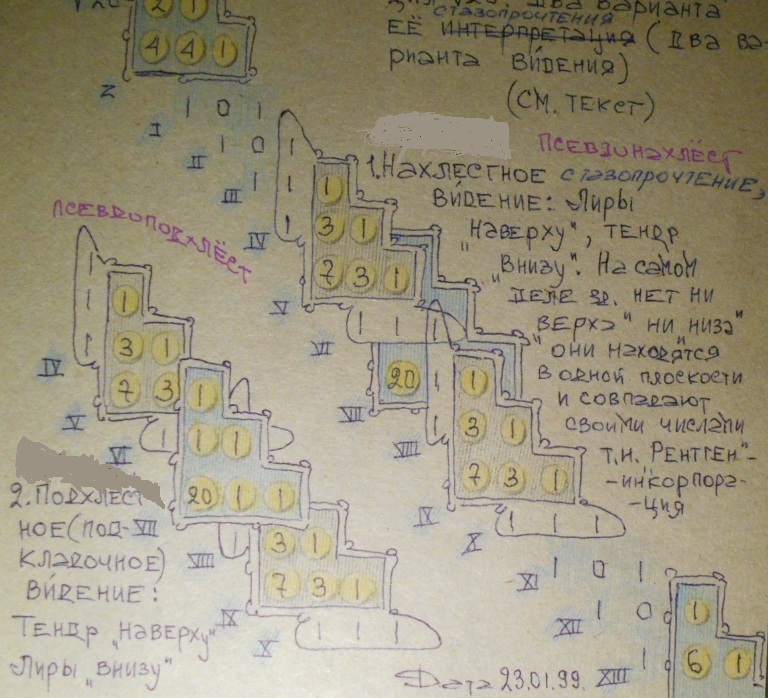 2 1
4 4 1
ДВА ВАРИАНТА
СТАЗОПРОЧТЕНИЯ
ЕЁ ИНТЕРПРЕТАЦИЯ (ДВА ВА-
РИАНТА ВИДЕНИЯ)
(СМ. ТЕКСТ)
1 0 1
I
1 0
II
1
III
IV
ПСЕВДОНАХЛЁСТ
1. НАХЛЕСТНОЕ СТАЗОПРОЧТЕНИЕ,
ВИДЕНИЕ: ЛИРЫ
"НАВЕРХУ", ТЕНДР
"ВНИЗУ". НА САМОМ
ДЕЛЕ НЕТ НИ
ВЕРХА" НИ НИЗА"
ОНИ НАХОДЯТСЯ
В ОДНОЙ ПЛОСКОСТИ
И СОВПАДАЮТ
СВОИМИ ЧИСЛАМИ
Т.Н. РЕНТГЕН"-
-ИНКОРПОРА-
-ЦИЯ
1
1
1
1
3 1
7 3 1
V
1 1 1
VI
20
VII
1
3 1
7 3 1
VIII
IX
X
1 1 1
ПСЕВДОПОДХЛЁСТ
1
1
1
1
3 1
7 3
IV
V
VI
1
1 1
20 1 1
VII
VIII
3 1
7 3 1
IX
X
1 1 1
2. ПОДХЛЕСТ
НОЕ (ПОД-
КЛАДОЧНОЕ)
ВИДЕНИЕ:
ТЕНДР "НАВЕРХУ"
ЛИРЫ "ВНИЗУ"
XI
1 0 1
XII
1 0
XIII
1
1
6 1
ДАТА 23.01.99.